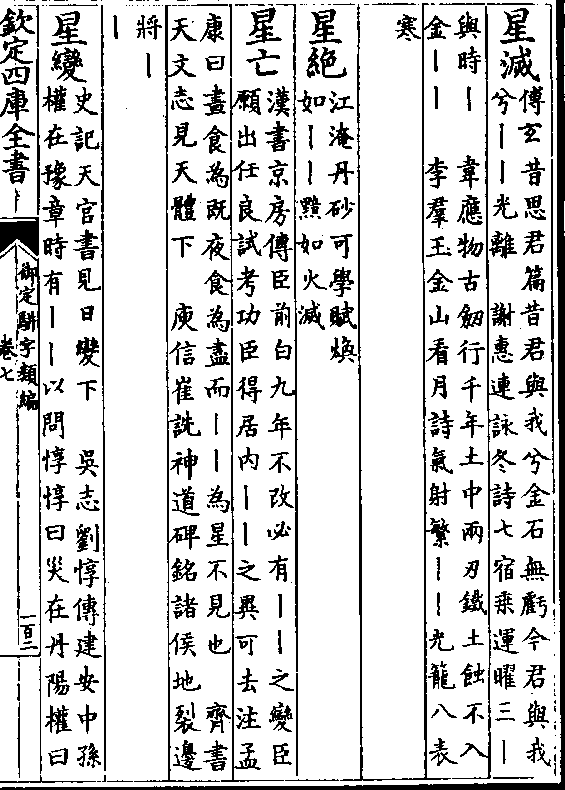 星滅
傅玄昔思君篇昔君與我兮金石無虧今君與我
兮丨丨光離　謝惠連詠冬詩七宿乘運曜三丨
與時丨　韋應物古劒行千年土中兩刃鐵土蝕不入
金丨丨　李羣玉金山看月詩氣射繁丨丨光籠八表
寒
星絕
江淹丹砂可學賦煥
如丨丨黯如火滅
星亡
漢書京房傳臣前白九年不改必有丨丨之變臣
願出任良試考功臣得居内丨丨之異可去注孟
康曰盡食為既夜食為盡而丨丨為星不見也　齊書
天文志見天體下　庾信崔詵神道碑銘諸侯地裂邊
將丨
丨
星變
史記天官書見日變下　吳志劉惇傳建安中孫
權在豫章時有丨丨以問惇惇曰災在丹陽權曰
欽定四庫全書
御定駢字類編
卷七
一百二